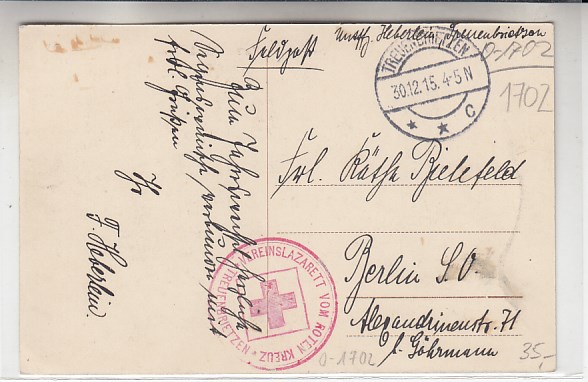 Feldpost
Unstffz. Heberlein Treuenbrietzen
TREUENBRIETZEN
30.12.15. 4-5 N
* * C
0-1702
1702
Zum Jahreswechsel herzliche
Ihr
F. Heberlein.
Frl. Käthe Bielefeld
Berlin S.O.
Alexandrinenstr. 71
b. Göhrmann
VEREINSLAZARETT VOM ROTEN KREUZ * TREUENBRIETZEN
0-1702
35,-